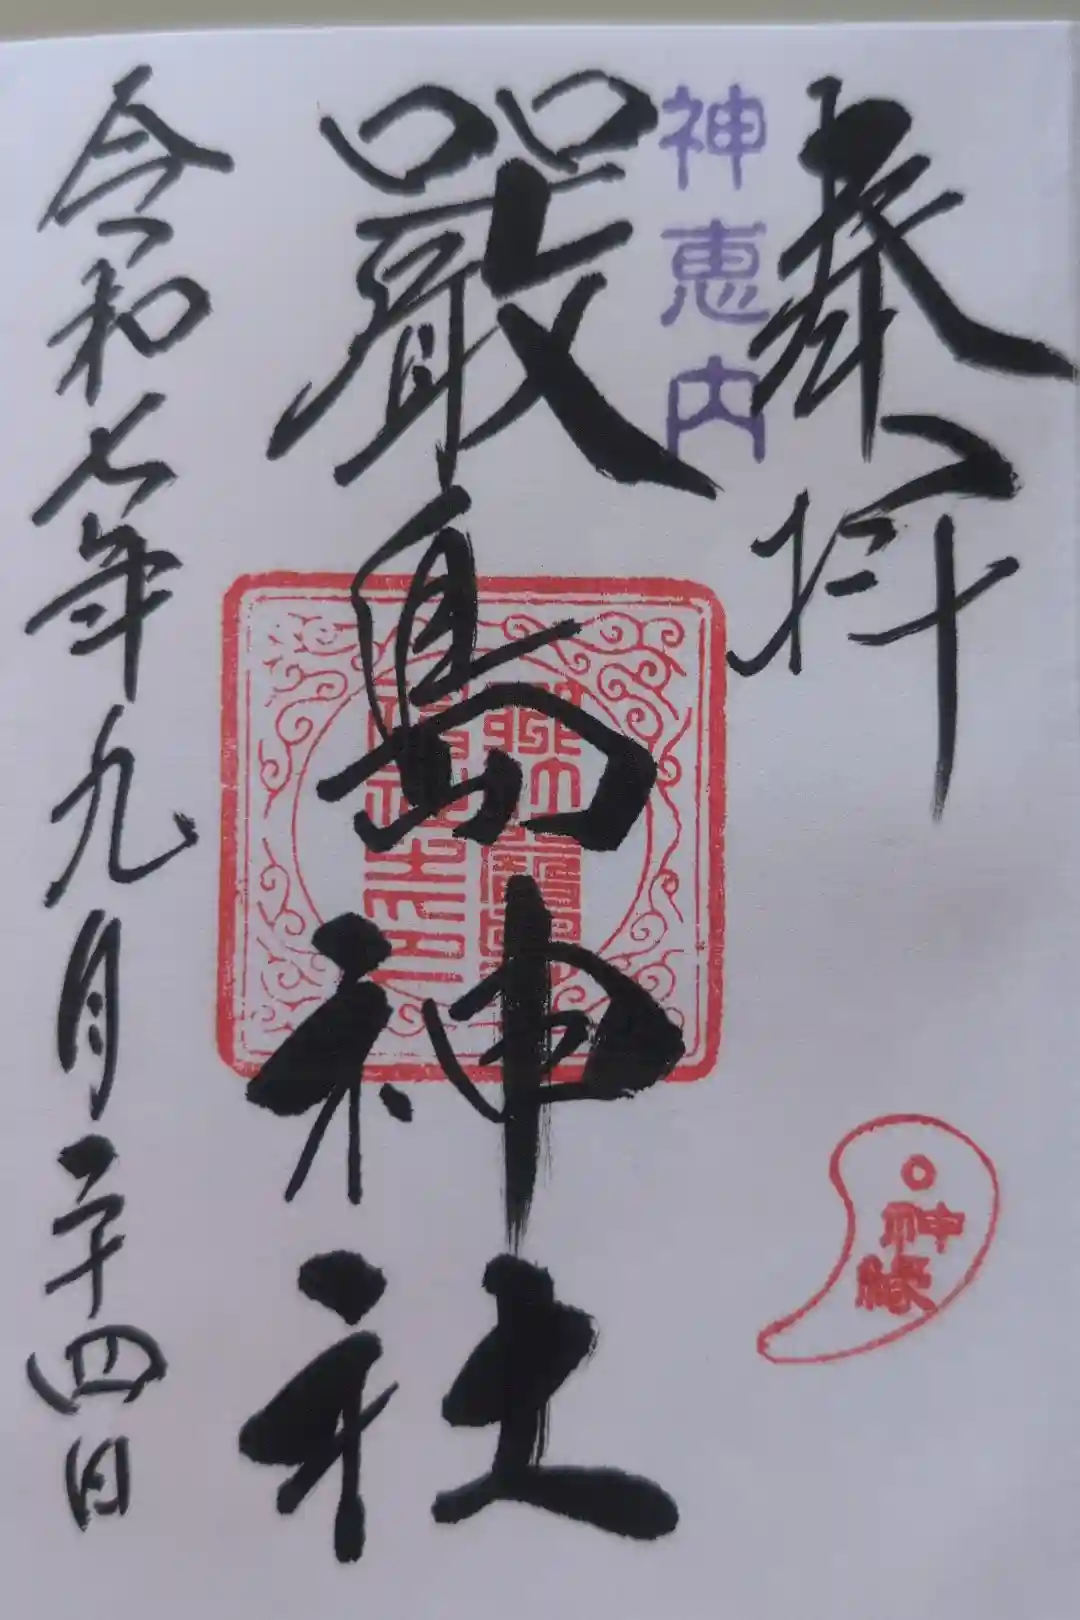 奉拝
神恵内
嚴島神社
令和七年九月二十四日
神縁